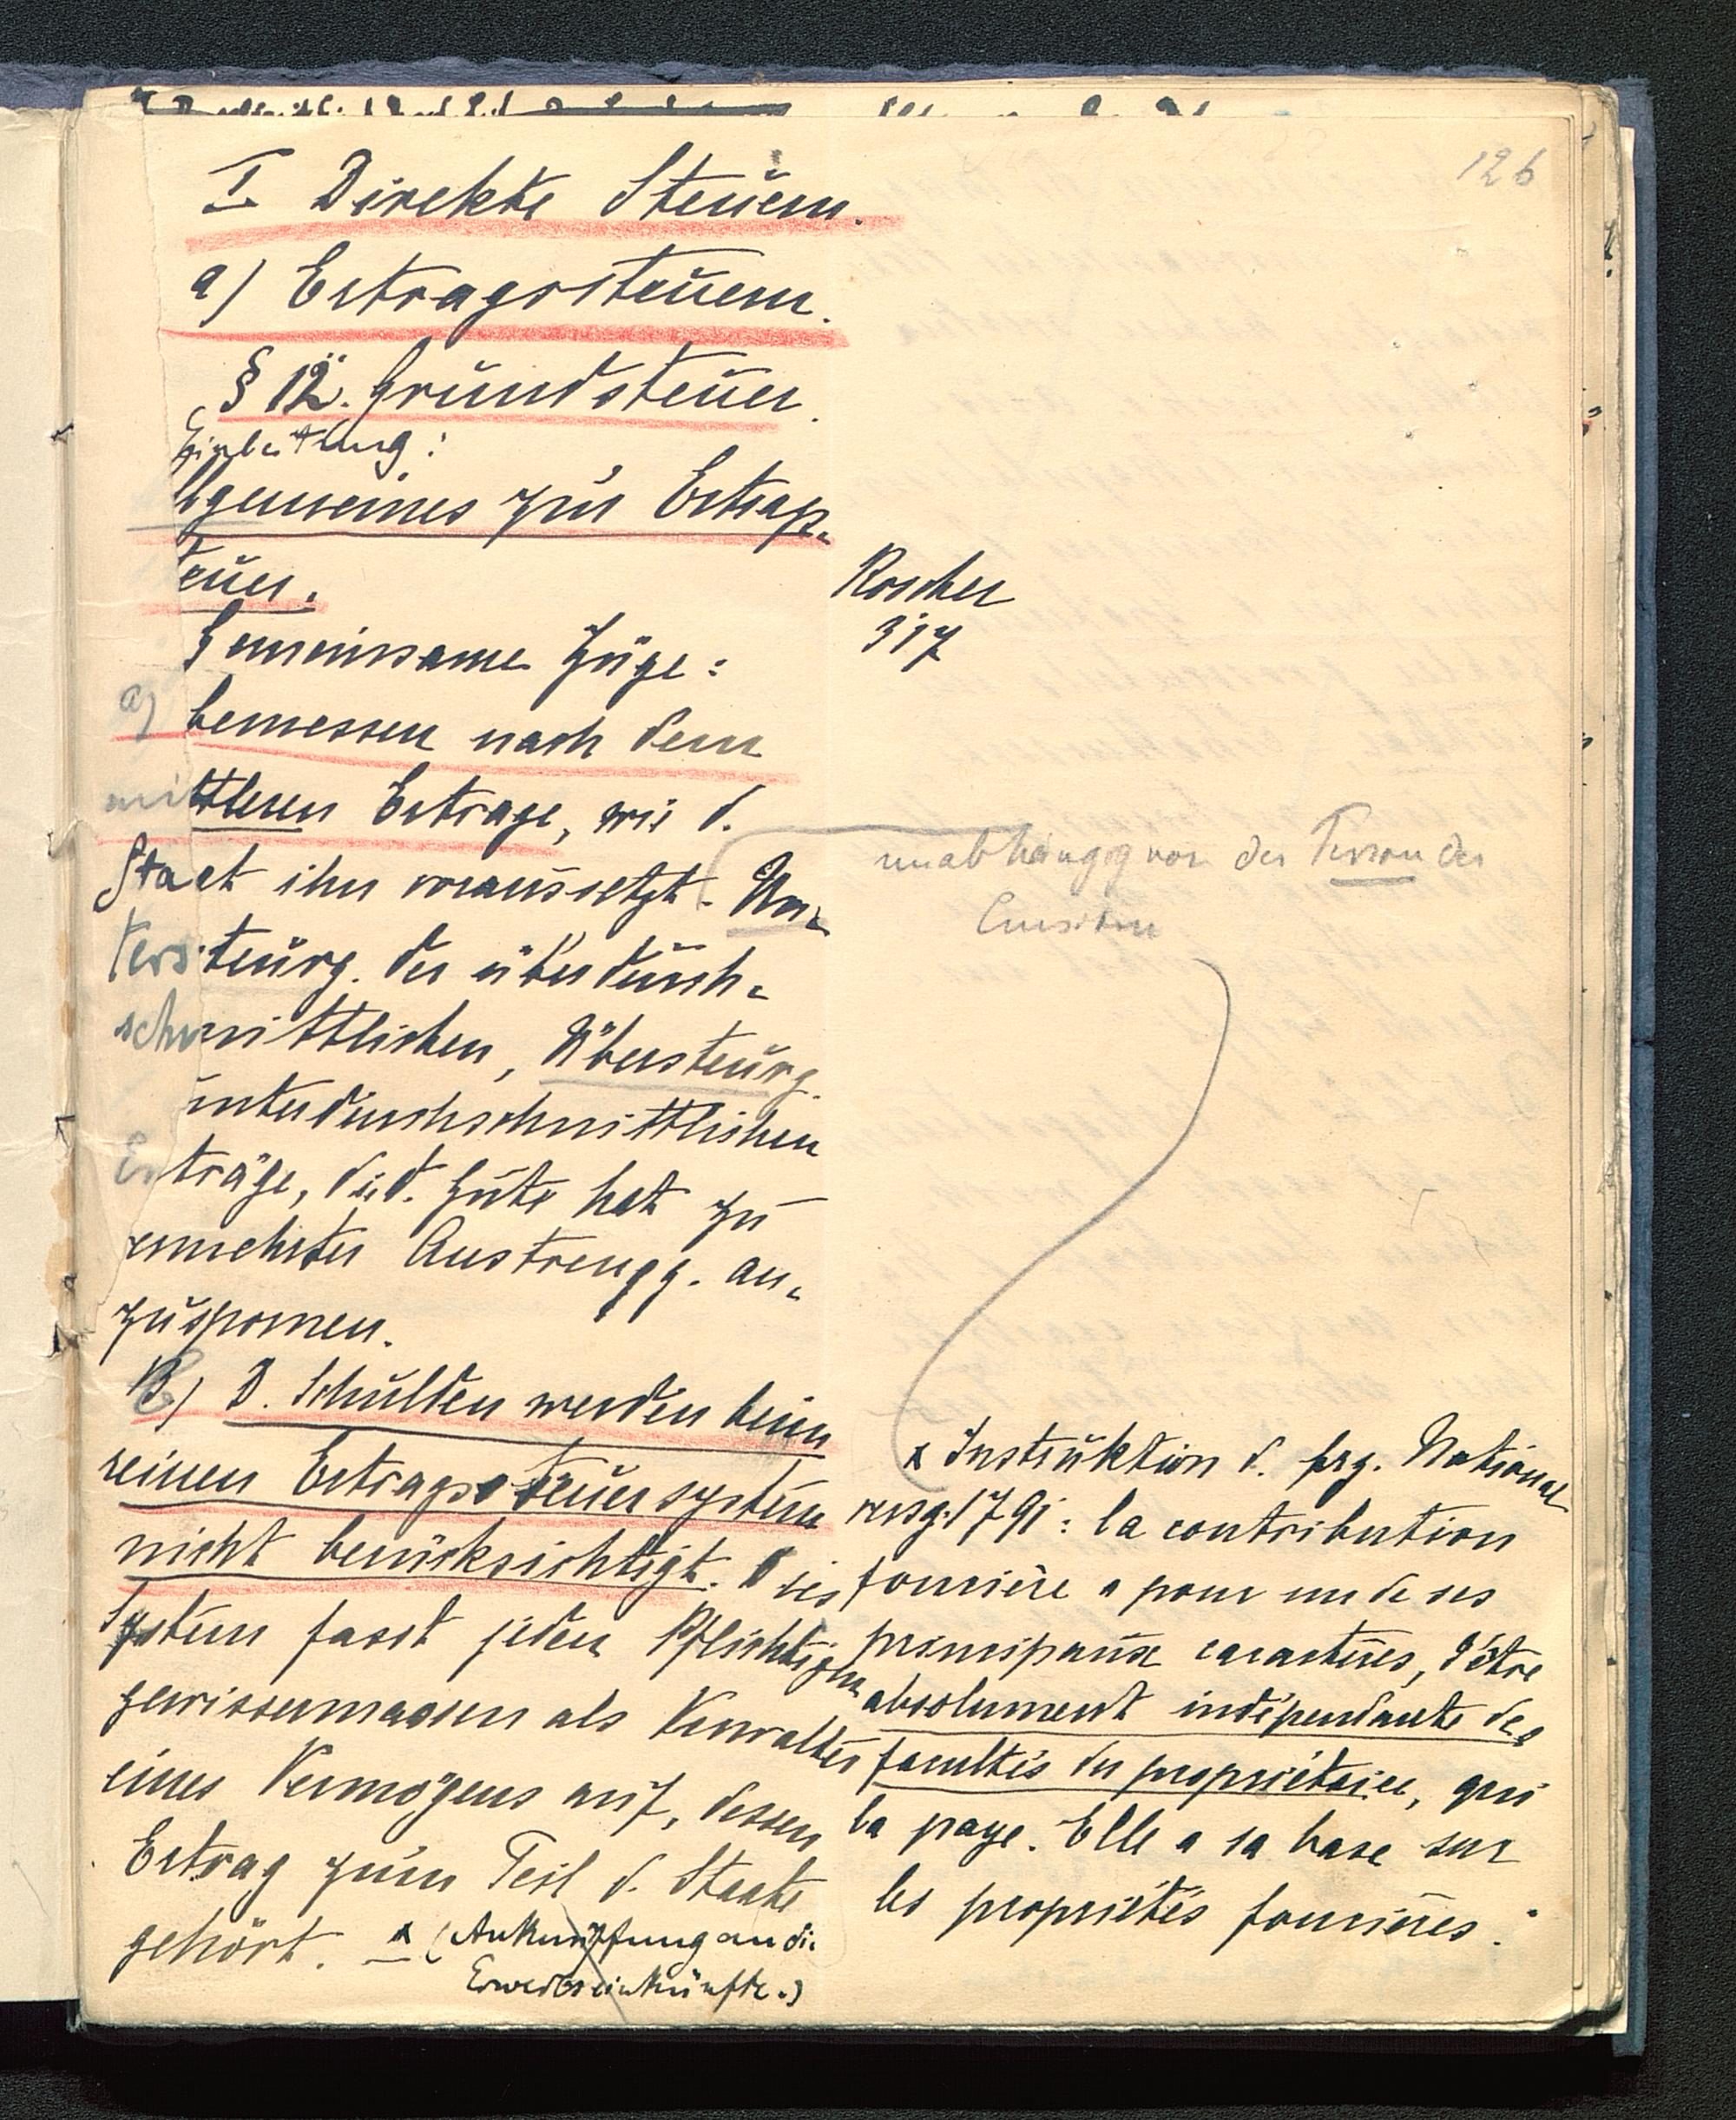 126
I Direkte Steuern.
a) Ertragssteuern.
§ 12. Grundsteuer.
Einleitung:
Allgemeines zur Ertrags-
steuer.
Roscher
317
Gemeinsame Züge:
a) bemessen nach dem
mittleren Ertrage, wie d.
Staat ihn voraussetzt. Un-
tersteurg. der überdurch-
schnittlichen, Übersteurg.
unterdurchschnittlichen
Erträge, die d. Gute hat zu
vermehrter Anstrengg. an-
zuspornen.
unabhängig von der Person des
Censiten
B) D. Schulden werden beim
reinen Ertragssteuersystem
nicht berücksichtigt. Dies
System fasst jeden Pflichtigen
gewissermassen als Verwalter
eines Vermögens auf, dessen
Ertrag zum Teil d. Staate
gehört. x (Anknüpfung an die
Erwerbseinkünfte.)
x Instruktion d. frz. National
versg. 1791: la contribution
foncière a pour un de ses
principaux caractères, d'être
absolument indépendante des
facultés du propriétaire, qui
la paye. Elle a sa base sur
les propriétés foncières."